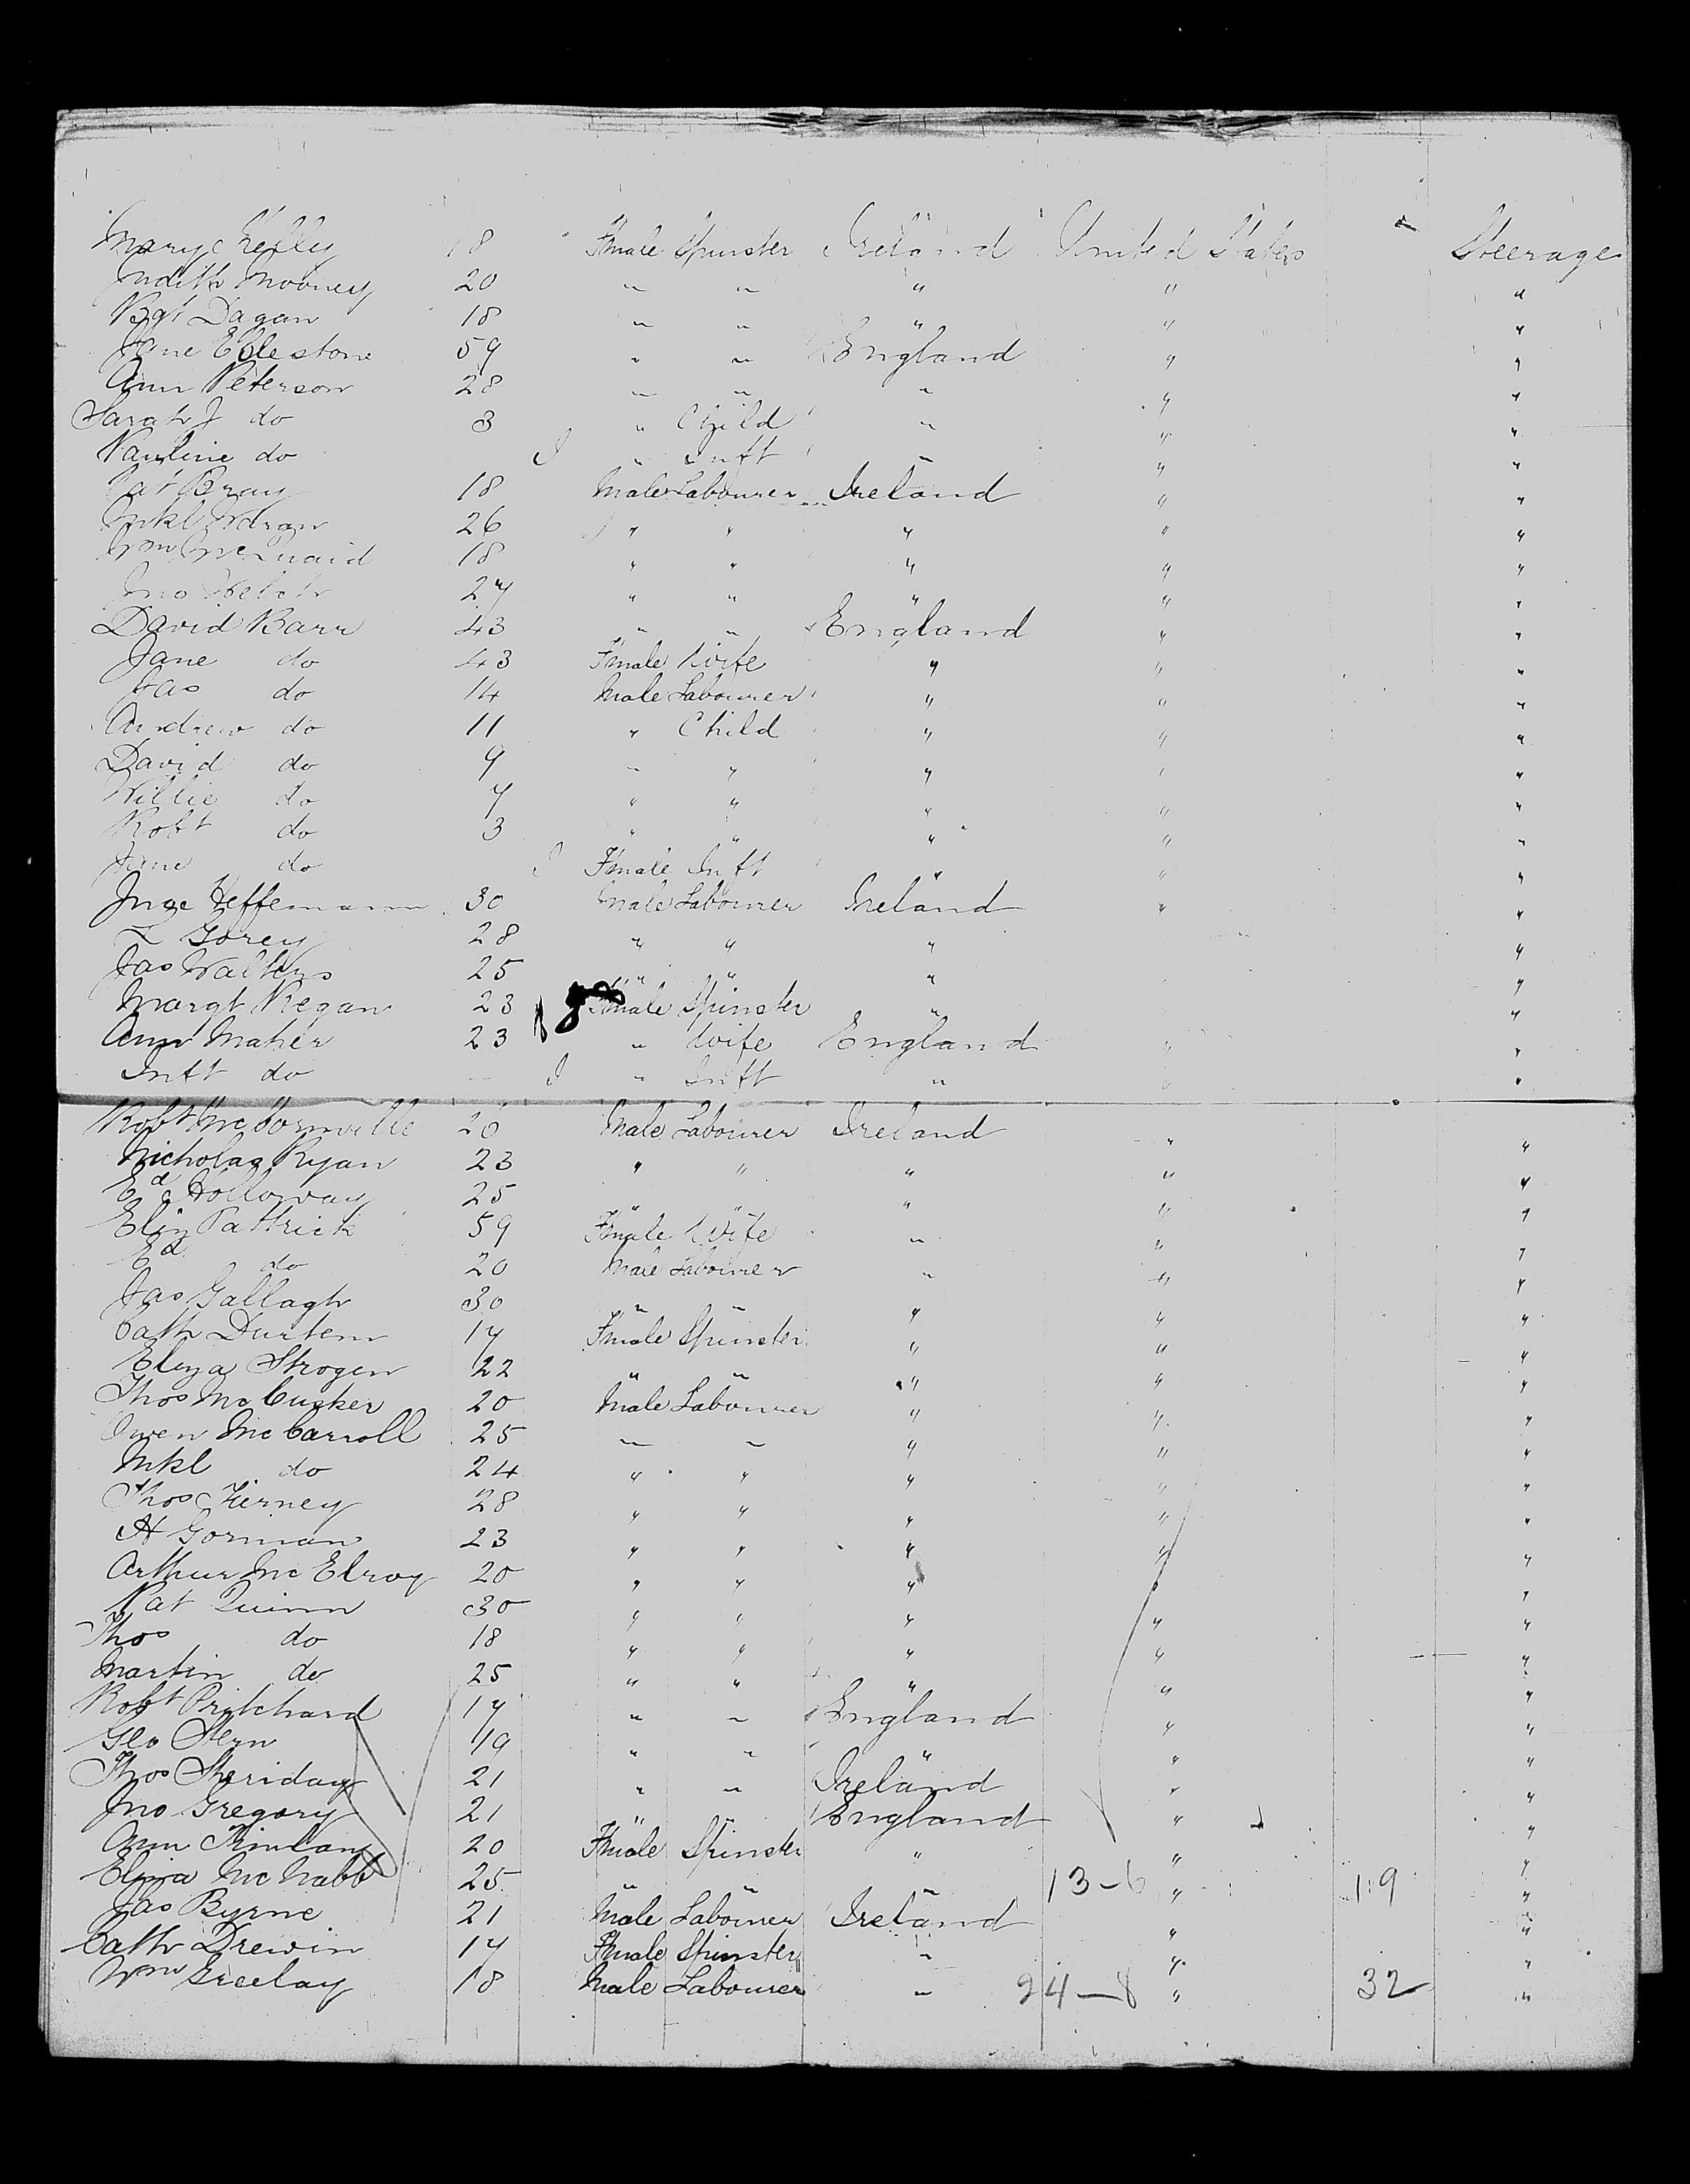 Mary Kelly 18 Fmale Spinster Ireland United States Steerage
Judith Mooney 20 " " " " "
Bgt Dagan 18 " " " " "
Jane Eglestone 59 " " England " "
Ann Peterson 28 " " " " "
Sarah J do 3 " Child " " "
Pauline do I " Inft " " "
Pat Bray 18 Male Labourer Ireland " "
Mkl 26 " " " " "
Wm McQuaid 18 " " " " "
Jno Welch 27 " " " " "
David Barr 43 " " England " "
Jane do 43 Fmale Wife " " "
Jas do 14 Male Labourer " " "
Andrew do 11 " Child " " "
David do 9 " " " " "
Willie do 7 " " " " "
Robt do 3 " " " " "
Jane do I Fmale Inft " " "
Heffernann 30 Male Labourer Ireland " "
Gorey 28 " " " "
Jas Walters 25 " " " "
Margt Regan 23 Fmale Spinster " "
Ann Maher 23 " Wife England " "
Inft do — I " Inft " " "
Robt 26 Male Labourer Ireland " "
Nicholas Ryan 23 " " " " "
Ed Holloway 25 " " " " "
Eliz Pattrick 59 Fmale Wife " " "
Ed do 20 Male Labourer " " "
Jas Gallagh 30 " " " " "
Cath Durtem 17 Fmale Spinster " " "
Eliza Strogen 22 " " " " "
Thos McCusker 20 Male Labourer " " "
Owen McCarroll 25 " " " " "
Mkl do 24 " " " " "
Thos Tierney 28 " " " " "
H Gorman 23 " " " " "
Arthur McElroy 20 " " " " "
Pat Quinn 30 " " " " "
Thos do 18 " " " " "
Martin do 25 " " " " "
Robt Pritchard 17 " " England " "
Geo Stern 19 " " " " "
Thos Sheriday 21 " " Ireland " "
Jno Gregory 21 " " England " "
Ann 20 Fmale Spinster " " "
Eliza McNabb 25 " " " 13-6 " 19 "
Jas Byrne 21 Male Labourer Ireland " "
Cath Drewin 17 Fmale Spinster " " "
Wm 18 Male Labourer " 24-8 " 32 "